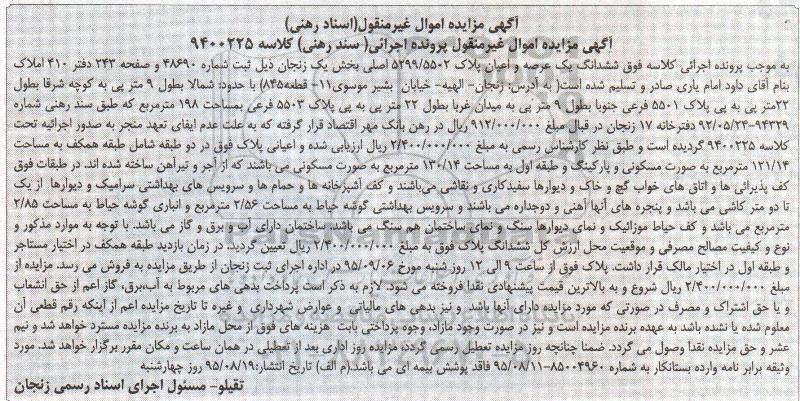 آگهی مزایده اموال غیرمنقول(اسناد رهنی)
آگهی مزایده اموال غیرمنقول پرونده اجرائی( سند رهنی) کلاسه ۹۴۰۰۲۲۵
به موجب پرونده اجرائی کلاسه فوق ششدانگ یک عرصه و اعیان پلاک ۵۲۹۹/۵۵۰۲ اصلی بخش یک زنجان ذیل ثبت شماره ۴۸۶۹۰ و صفحه ۲۴۳ دفتر ۴۱۰ املاک
بنام آقای داود امام یاری صادر و تسلیم شده است( به آدرس: زنجان- الهیه- خیابان بشیر موسوی۱۱- قطعه۸۴۵) با حدود: شمالا بطول ۹ متر پی به کوچه شرقا بطول
۲۲متر پی به پی پلاک ۵۵۰۱ فرعی جنوبا بطول ۹ متر پی به میدان غربا بطول ۲۲ متر پی به پی پلاک ۵۵۰۳ فرعی بمساحت ۱۹۸ مترمربع که طبق سند رهنی شماره
۹۴۳۲۹-۹۲/۰۵/۲۴ دفترخانه ۱۷ زنجان در قبال مبلغ ۹۱۲/۰۰۰/۰۰۰ ریال در رهن بانک مهر اقتصاد قرار گرفته که به علت عدم ایفای تعهد منجر به صدور اجرائیه تحت
کلاسه ۹۴۰۰۲۲۵ گردیده است و طبق نظر کارشناس رسمی به مبلغ ۲/۴۰۰/۰۰۰/۰۰۰ ریال ارزیابی شده و اعیانی پلاک فوق در دو طبقه شامل طبقه همکف به مساحت
۱۲۱/۱۴ مترمربع به صورت مسکونی و پارکینگ و طبقه اول به مساحت ۱۳۰/۱۴ مترمربع به صورت مسکونی می باشند که از آجر و تیرآهن ساخته شده اند. در طبقات فوق
کف پذیرائی ها و اتاق های خواب گچ و خاک و دیوارها سفیدکاری و نقاشی می‌باشند و کف آشپزخانه ها و حمام ها و سرویس های بهداشتی سرامیک و دیوارها از یک
تا دو متر کاشی می باشد و پنجره های آنها آهنی و دوجداره می باشند و سرویس بهداشتی گوشه حیاط به مساحت ۲/۵۶ مترمربع و انباری گوشه حیاط به مساحت ۲/۸۵
مترمربع می باشد و کف حیاط موزائیک و نمای دیوارها سنگ و نمای ساختمان هم سنگ می باشد. ساختمان دارای آب و برق و گاز می باشد. با توجه به موارد مذکور و
نوع و کیفیت مصالح مصرفی و موقعیت محل ارزش کل ششدانگ پلاک فوق به مبلغ ۲/۴۰۰/۰۰۰/۰۰۰ ریال تعیین گردید. در زمان بازدید طبقه همکف در اختیار مستاجر
و طبقه اول در اختیار مالک قرار داشت. پلاک فوق از ساعت ۹ الی ۱۲ روز شنبه مورخ ۹۵/۰۹/۰۶ در اداره اجرای ثبت زنجان از طریق مزایده به فروش می رسد. مزایده از
مبلغ ۲/۴۰۰/۰۰۰/۰۰۰ ریال شروع و به بالاترین قیمت پیشنهادی نقدا فروخته می شود. لازم به ذکر است پرداخت بدهی های مربوط به آب،برق، گاز اعم از حق انشعاب
و یا حق اشتراک و مصرف در صورتی که مورد مزایده دارای آنها باشد و نیز بدهی های مالیاتی و عوارض شهرداری و غیره تا تاریخ مزایده اعم از اینکه رقم قطعی آن
معلوم شده یا نشده باشد به عهده برنده مزایده است و نیز در صورت وجود مازاد، وجوه پرداختی بابت هزینه های فوق از محل مازاد به برنده مزایده مسترد خواهد شد و نیم
عشر و حق مزایده نقدا وصول می گردد. ضمنا چنانچه روز مزایده تعطیل رسمی گردد، مزایده روز اداری بعد از تعطیلی در همان ساعت و مکان مقرر برگزار خواهد شد. مورد
وثیقه برابر نامه وارده بستانکار به شماره ۸۵۰۰۴۹۶۰-۹۵/۰۸/۱۱ فاقد پوشش بیمه ای می باشد.(م الف) تاریخ انتشار:۹۵/۰۸/۱۹ روز چهارشنبه
تقیلو- مسئول اجرای اسناد رسمی زنجان